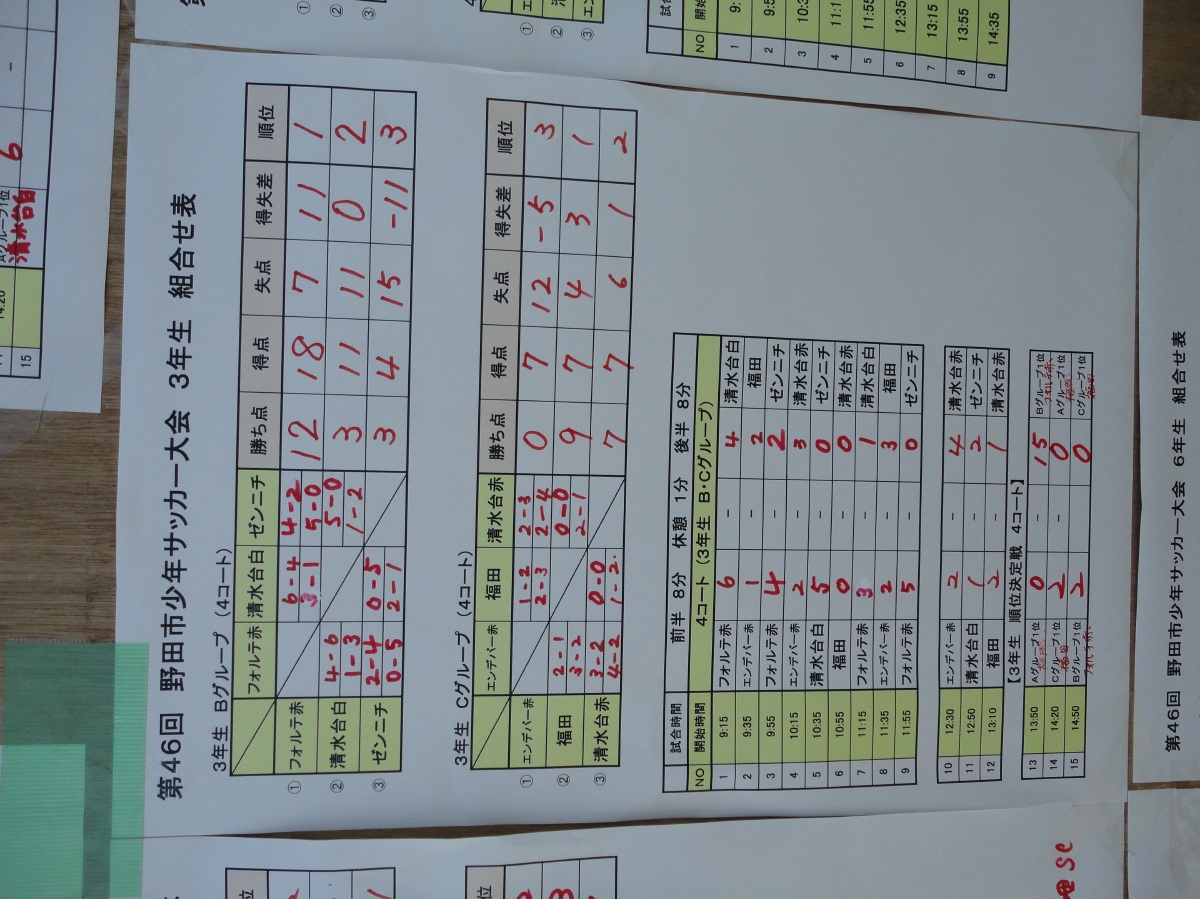 第46回 野田市少年サッカー大会 3年生 組合せ表
3年生 Bグループ (4コート)
フォルテ赤 清水台白 ゼンニチ 勝ち点 得点 失点 得失差 順位
① フォルテ赤 6-4 4-2 12 18 7 11 1
3-1 5-0
② 清水台白 4-6 5-0 3 11 11 0 2
1-3 1-2
③ ゼンニチ 2-4 0-5 3 4 15 -11 3
0-5 2-1
3年生 Cグループ (4コート)
エンデバー赤 福田 清水台赤 勝ち点 得点 失点 得失差 順位
① エンデバー赤 1-2 2-3 0 7 12 -5 3
2-3 2-4
② 福田 2-1 0-0 9 7 4 3 1
3-2 2-1
③ 清水台赤 3-2 0-0 7 7 6 1 2
4-2 1-2
試合時間 前半 8分 休憩 1分 後半 8分
NO 開始時間 4コート (3年生 B・Cグループ)
1 9:15 フォルテ赤 6 - 4 清水台白
2 9:35 エンデバー赤 1 - 2 福田
3 9:55 フォルテ赤 4 - 2 ゼンニチ
4 10:15 エンデバー赤 2 - 3 清水台赤
5 10:35 清水台白 5 - 0 ゼンニチ
6 10:55 福田 0 - 0 清水台赤
7 11:15 フォルテ赤 3 - 1 清水台白
8 11:35 エンデバー赤 2 - 3 福田
9 11:55 フォルテ赤 5 - 0 ゼンニチ
10 12:30 エンデバー赤 2 - 4 清水台赤
11 12:50 清水台白 1 - 2 ゼンニチ
12 13:10 福田 2 - 1 清水台赤
【3年生 順位決定戦 4コート】
13 13:50 Aグループ1位 0 - 15 Bグループ1位
フォルテ赤
14 14:20 Cグループ1位 2 - 0 Aグループ1位
福田
15 14:50 Bグループ1位 2 - 0 Cグループ1位
フォルテ赤 福田
第46回 野田市少年サッカー大会 6年生 組合せ表
Aグループ1位
15 清水台白 6
NO
1 9:
2
3
4
5 11:55
6 12:35
7 13:15
8 13:55
9 14:35
①
②
③
SC